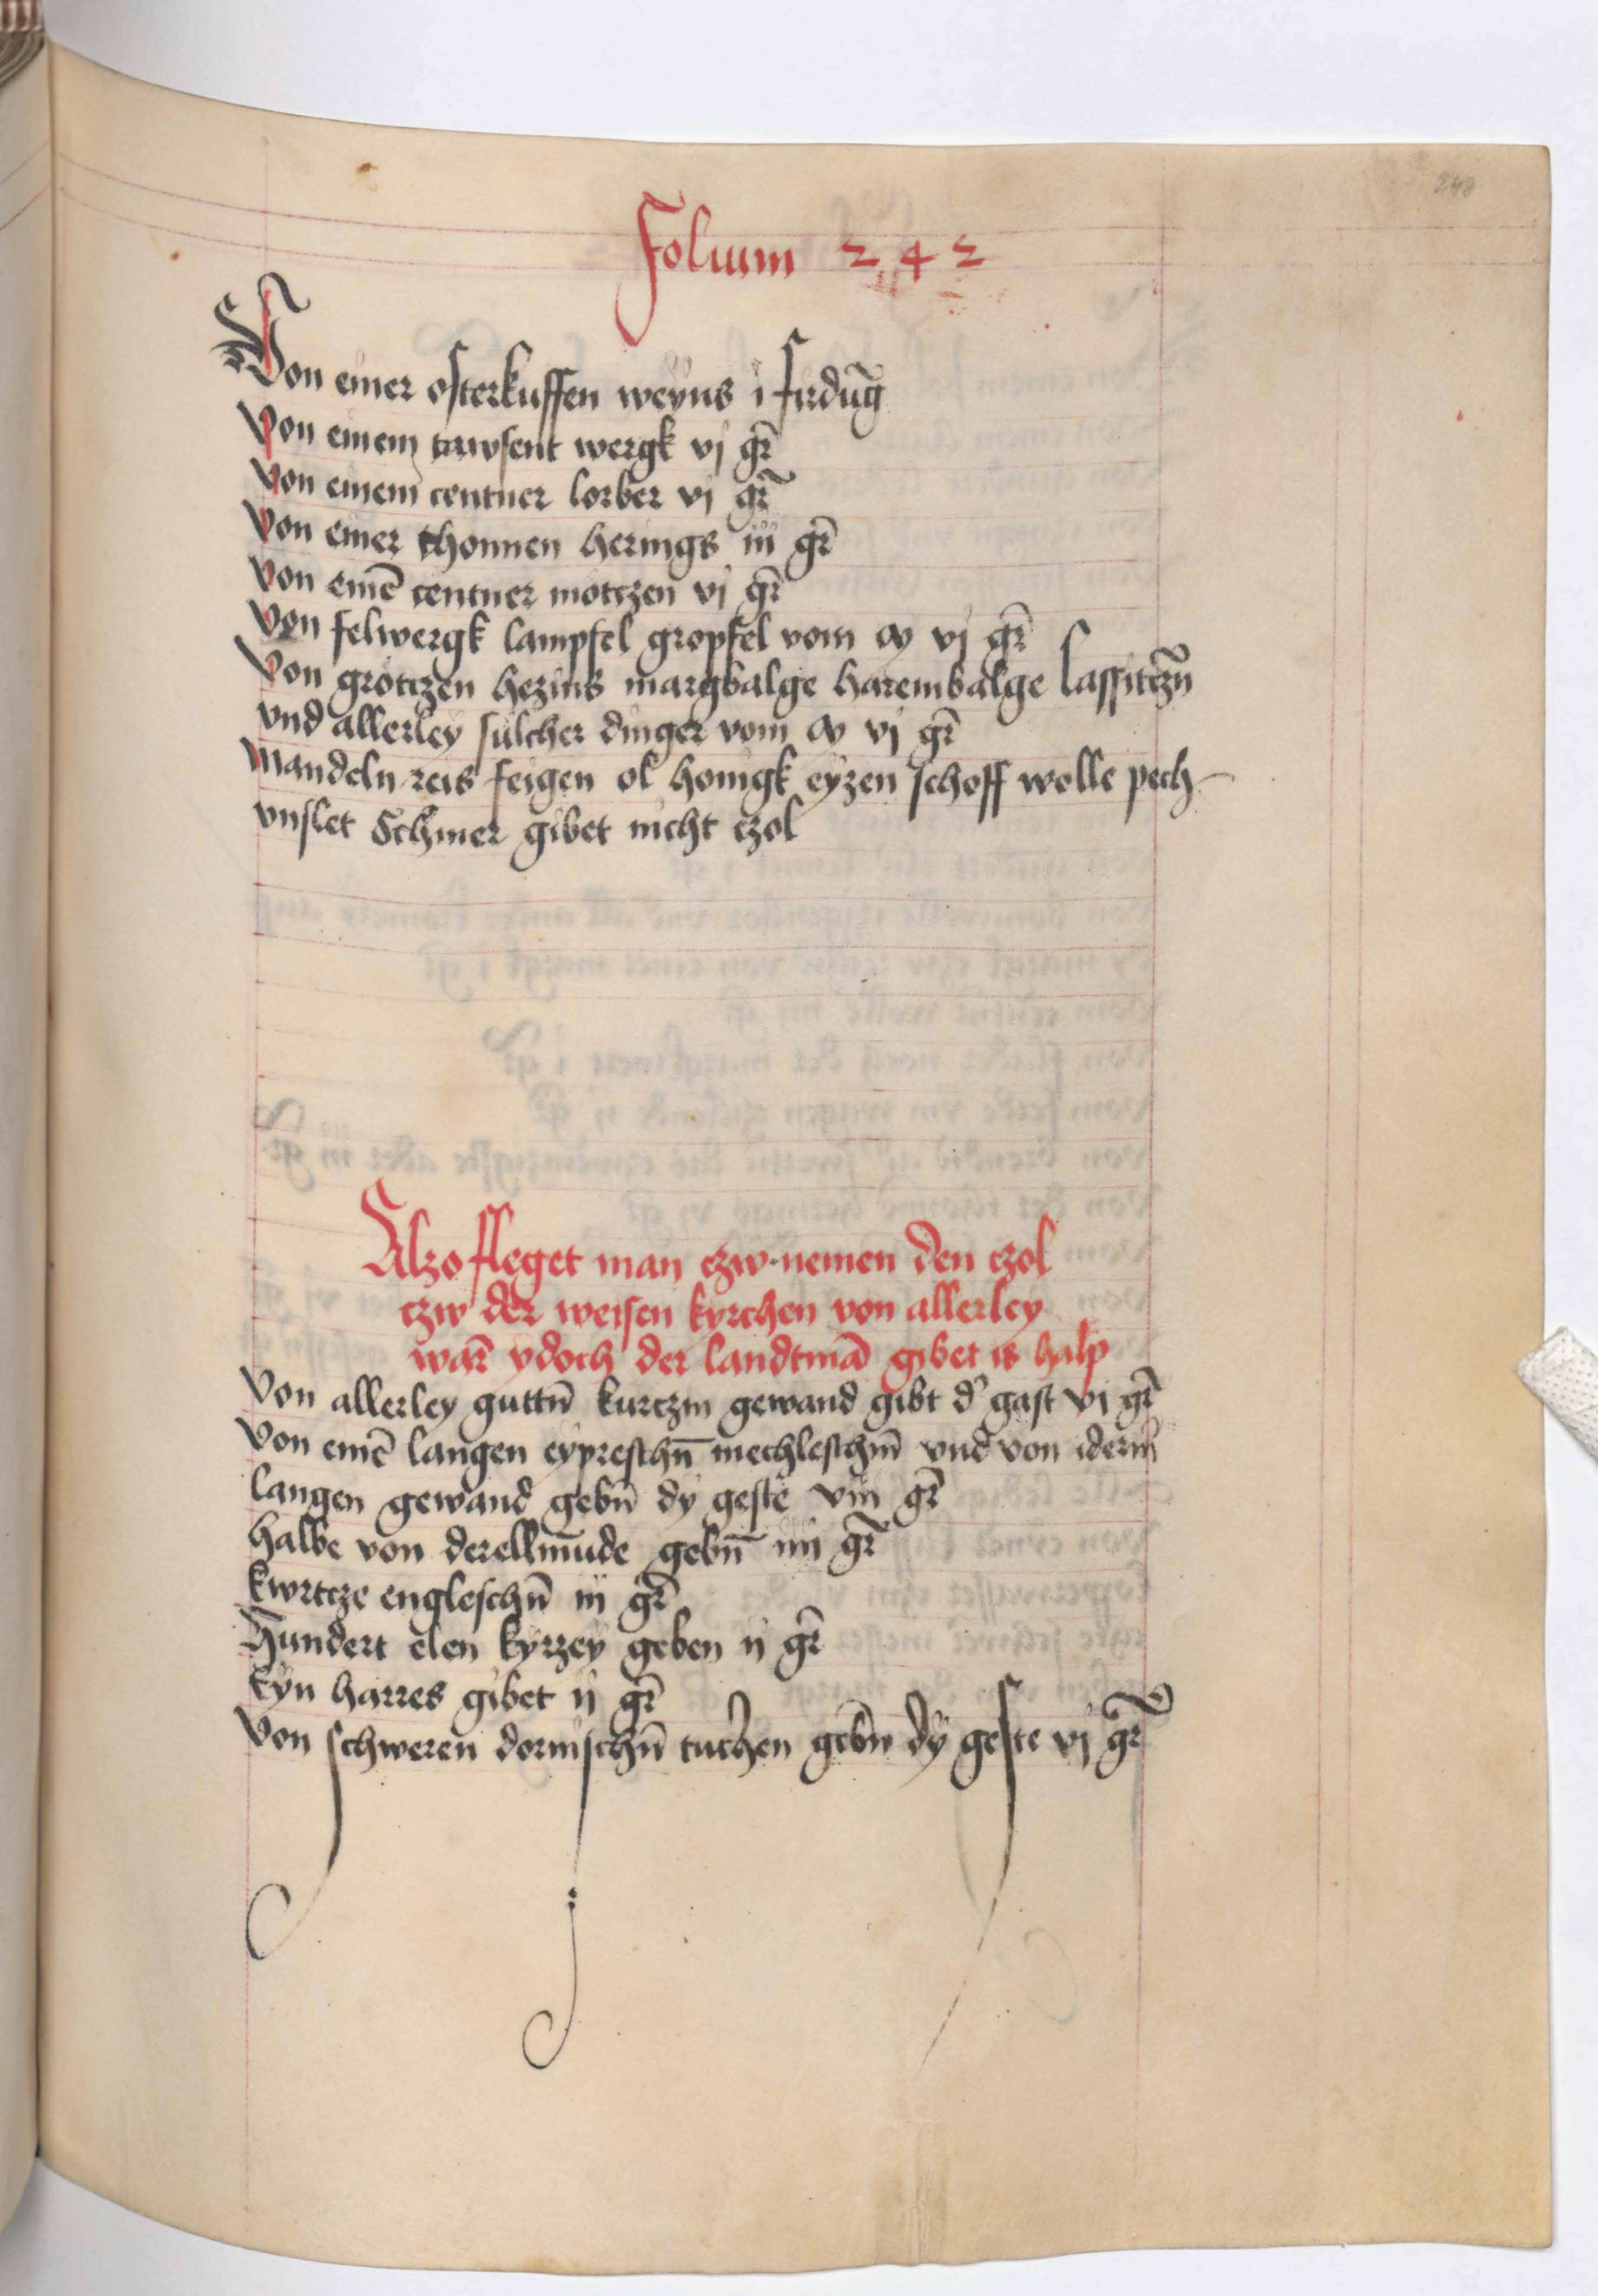 248
Folium 242
Von einer osterkuffen weyns i firdūg
Von einem tawsent wergk vj gr̄
Von einem centner lorber vj gr̄
Von einer thonnen herings iij gr̄
Von einē centner motczen vj gr̄
Von felwergk lampfel gropfel vom vj gr̄
Von grotczen hezins margbalge harembalge lassitczn̄
vnd allerley sulcher dinger vom vj gr̄
Mandeln reis feigen ol honigk eyzen schoff wolle pech
vnslet Schmer gibet nicht czol
Alzo fleget man czw nemen den czol
czw der weisen kyrchen von allerley
war̄ ydoch der landtmā gibet is halp
Von allerley guttn̄ kurtczm gewand gibt d' gast vj gr̄
Von einē langen eypreschn̄ mechleschm̄ vnd von iderm
langen gewand gebn̄ dy geste viij gr̄
halbe von derellmude gebn̄ iiij gr̄
kwrtcze engleschn̄ iij gr̄
Hundert elen kyrzey geben ij gr̄
Eyn harres gibet ij gr̄
Von schweren dornischn̄ tuchen gebn̄ dy geste vj gr̄